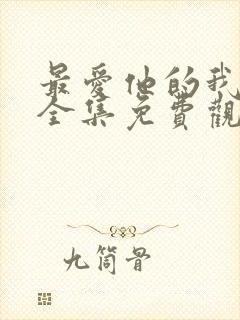 最愛他的我
全集免費觀
九筒骨